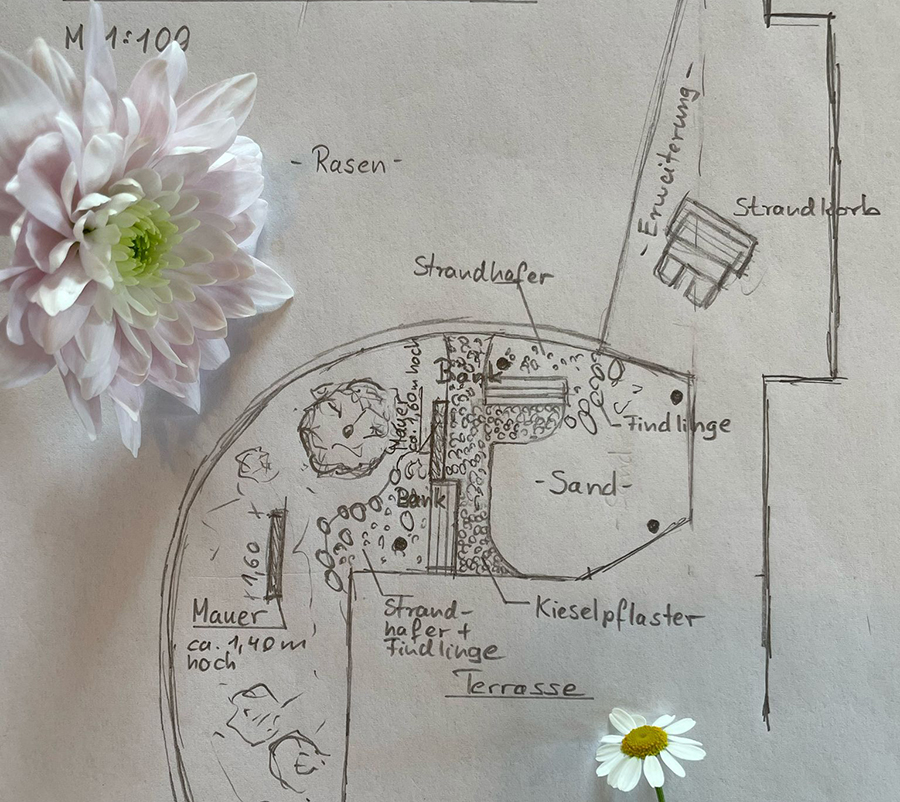 M 1:100
- Rasen -
- Erweiterung -
Strandkorb
Strandhafer
Bank
Mauer
ca. 1,60m hoch
Findlinge
- Sand -
Bank
1,60
Mauer
ca. 1,40m
hoch
Strand-
hafer +
Findlinge
Kieselpflaster
Terrasse